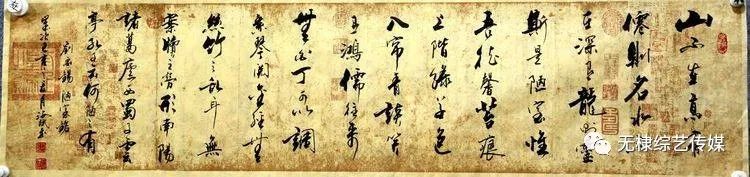 山不在高有
仙則名水
在深有龍則靈
斯是陋室惟
吾德馨苔痕
上階綠草色
入帘青談笑
有鴻儒往來
無白丁可以調
素琴閱金經無
絲竹之亂耳無
案牘之勞形南陽
諸葛廬西蜀子雲
亭孔子云何陋之有
劉禹錫陋室銘
己亥
无棣综艺传媒